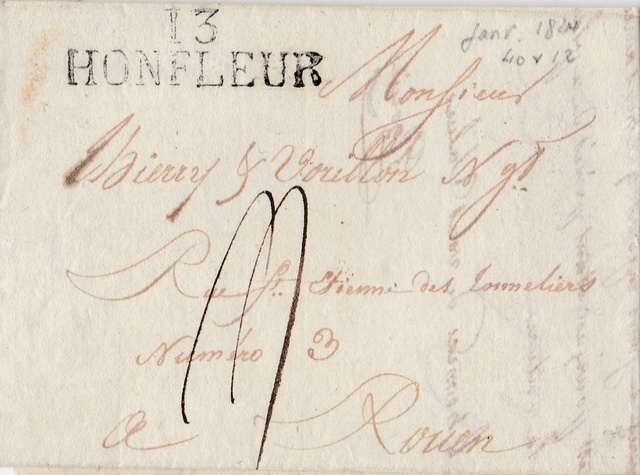 13
HONFLEUR
Janv. 
40 x 12
Monsieur
Thierry & Vorillon Ngt
Rue St. Etienne des Tonneliers
Numéro 3
a Rouen